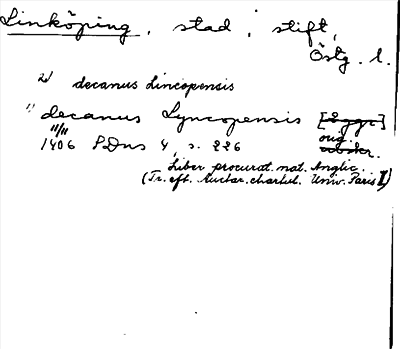 Linköping, stad, stift,
Östg. l.
2) decanus Lincopensis
1) decanus Lyncopensis [Åggr]
11/11 orig.
1406 SDns 4, s. 226 avskr.
Liber procurat. nat. Anglic.
(Tr. eft. Auctar. chartul. Univ. Paris I)